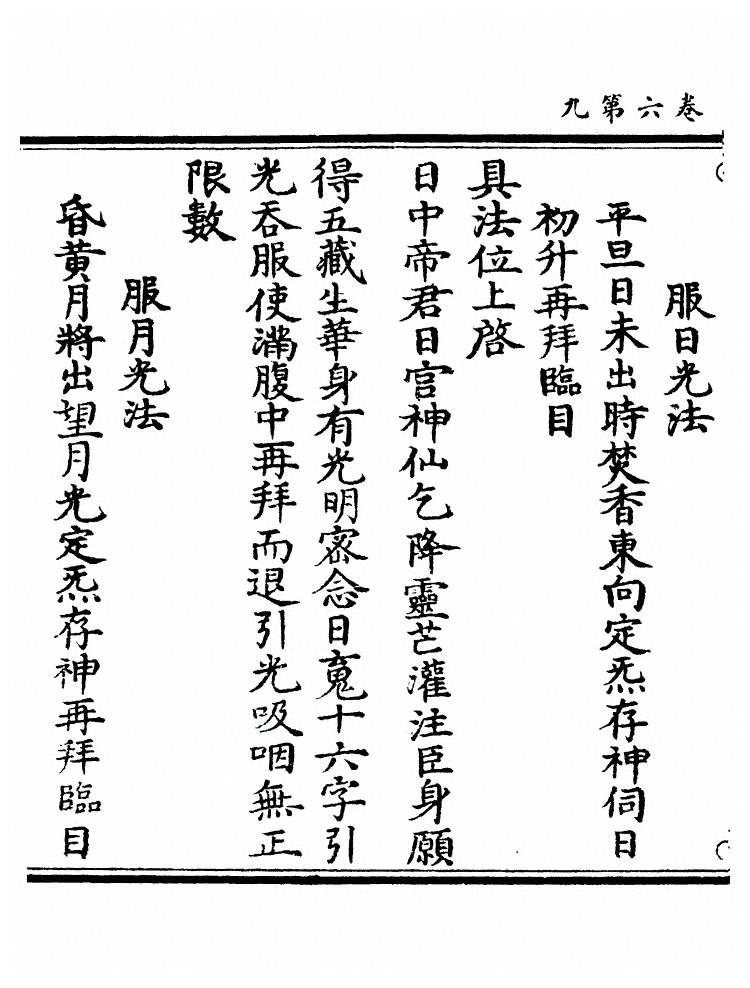 卷六第九
服日光法
平旦日未出時焚香東向定炁存神伺日
初升再拜臨目
具法位上啓
日中帝君日宫神仙乞降靈芒灌注臣身願
得五藏生華身有光明密念日䰟十六字引
光吞服使滿腹中再拜而退引光吸咽無正
限數
服月光法
昏黄月將出望月光定炁存神再拜臨目